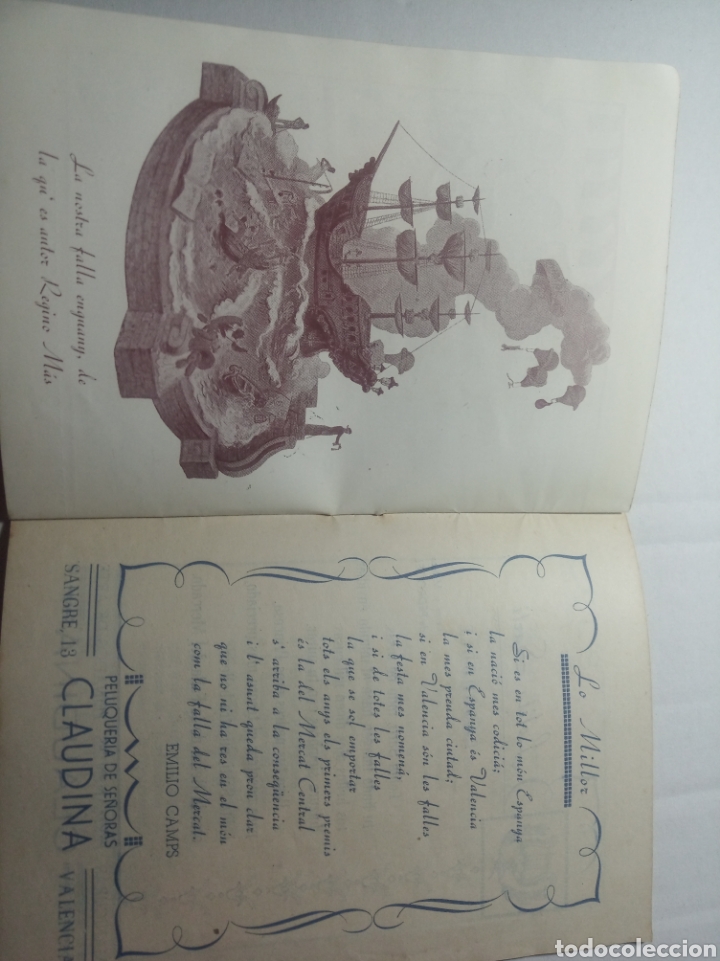 La nostra falla enguany, de
la qu' es autor Regino Más
Lo Millor
Si es en tot lo món Espanya
la nació mes codiciá;
i si en Espanya és Valencia
la mes preuda ciutad;
si en Valencia són les falles
la festa mes nomená,
i si de totes les falles
la que se sol emportar
tots els anys els primers premis
és la del Mercat Central
s' arriba a la conseqüencia
i l' asunt queda prou clar
que no ni ha res en el món
com la falla del Mercat.
EMILIO CAMPS
PELUQUERIA DE SEÑORAS
SANGRE, 13 CLAUDINA VALENCIA
todocoleccion